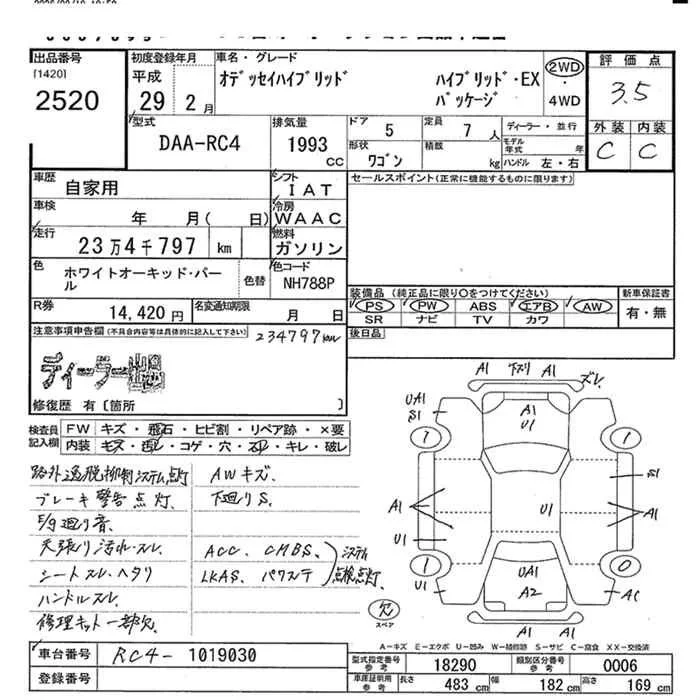 出品番号
[1420]
2520
初度登録年月
平成
29 2月
車名・グレード
オデッセイハイブリッド ハイブリッド・EX
パッケージ
2WD
・
4WD
評価点
3.5
外装 内装
C C
型式
DAA-RC4
排気量
1993
CC
ドア
5
定員
7人
形状
ワゴン
積載
kg
ディーラー・並行
モデル年式 年
ハンドル 左・右
車歴
自家用
シフト
IAT
車検
年 月( 日)
冷房
WAAC
走行
23万4千797 km
燃料
ガソリン
色
ホワイトオーキッド・パール
色替
色コード
NH788P
R券
14,420円
名変通知期限
月 日
セールスポイント(正常に機能するものに限ります)
装備品(純正品に限り○をつけてください)
PS PW ABS エアB AW
SR ナビ TV カワ
新車保証書
有・無
後日品
注意事項申告欄(不具合内容等は具体的に記入して下さい)
234797km
ディーラー出品
修復歴 有〔箇所 〕
検査員
記入欄
FW キズ・飛石・ヒビ割・リペア跡・×要
内装 キズ・汚レ・コゲ・穴・スレ・キレ・破レ
路外逸脱抑制システム点灯
ブレーキ警告点灯
天張り汚れ・スレ
シートスレ・ヘタリ
ハンドルスレ
修理キット一部欠
AWキズ
下廻りS
ACC、CMBS、
LKAS、パワステ
システム
点検点灯
A1 下スリ A1 ズレ
UA1
S1
A1
U1
S1
A1 A1
U1
U1
U1
UA1
A2
A1 A1
欠
スペア
A-キズ E-エクボ U-凹み W-補修跡 S-サビ C-腐食 XX-交換済
車台番号
RC4-1019030
登録番号
型式指定番号
参考
18290
類別区分番号
参考
0006
車庫証明用
参考
長さ
483 cm
幅
182 cm
高さ
169 cm